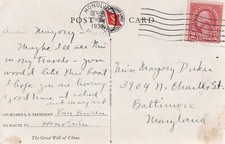 HONOLULU
1936
POST CARD
Dear Marjory -
Maybe I'll see this
in my travels - you
would like this boat
I hope you are having
good time at
aunt margaret
ON BOARD S.S. PRESIDENT Van Buren
EN ROUTE TO Honolulu
The Great Wall of China
Miss Marjory Decker
3904 N. Charles St.
Baltimore
Maryland